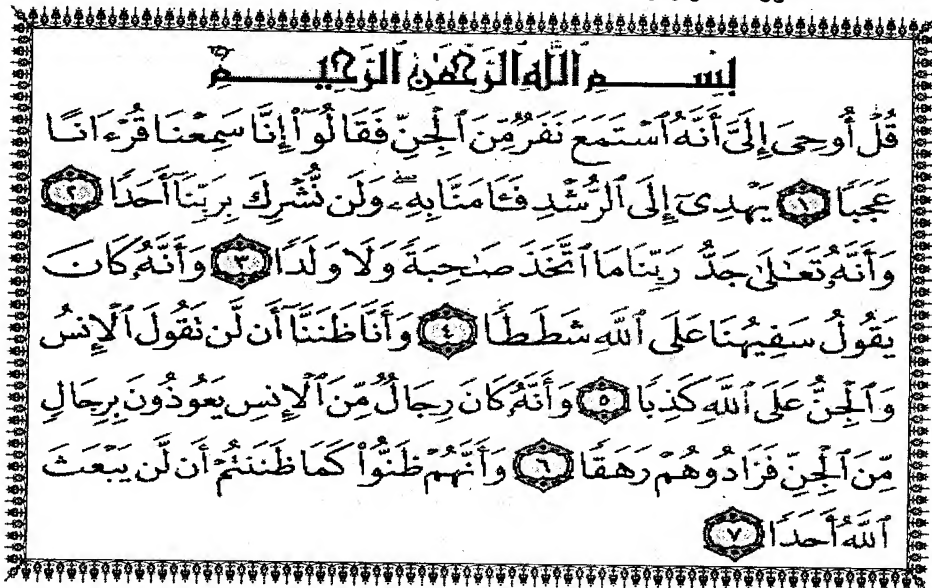 بِسْمِ ٱللَّهِ ٱلرَّحْمَٰنِ ٱلرَّحِيمِ
قُلْ أُوحِىَ إِلَىَّ أَنَّهُ ٱسْتَمَعَ نَفَرٌ مِّنَ ٱلْجِنِّ فَقَالُوٓا۟ إِنَّا سَمِعْنَا قُرْءَانًا
عَجَبًا ١ يَهْدِىٓ إِلَى ٱلرُّشْدِ فَـَٔامَنَّا بِهِۦ ۖ وَلَن نُّشْرِكَ بِرَبِّنَآ أَحَدًا ٢
وَأَنَّهُۥ تَعَٰلَىٰ جَدُّ رَبِّنَا مَا ٱتَّخَذَ صَٰحِبَةً وَلَا وَلَدًا ٣ وَأَنَّهُۥ كَانَ
يَقُولُ سَفِيهُنَا عَلَى ٱللَّهِ شَطَطًا ٤ وَأَنَّا ظَنَنَّآ أَن لَّن تَقُولَ ٱلْإِنسُ
وَٱلْجِنُّ عَلَى ٱللَّهِ كَذِبًا ٥ وَأَنَّهُۥ كَانَ رِجَالٌ مِّنَ ٱلْإِنسِ يَعُوذُونَ بِرِجَالٍ
مِّنَ ٱلْجِنِّ فَزَادُوهُمْ رَهَقًا ٦ وَأَنَّهُمْ ظَنُّوا۟ كَمَا ظَنَنتُمْ أَن لَّن يَبْعَثَ
ٱللَّهُ أَحَدًا ٧